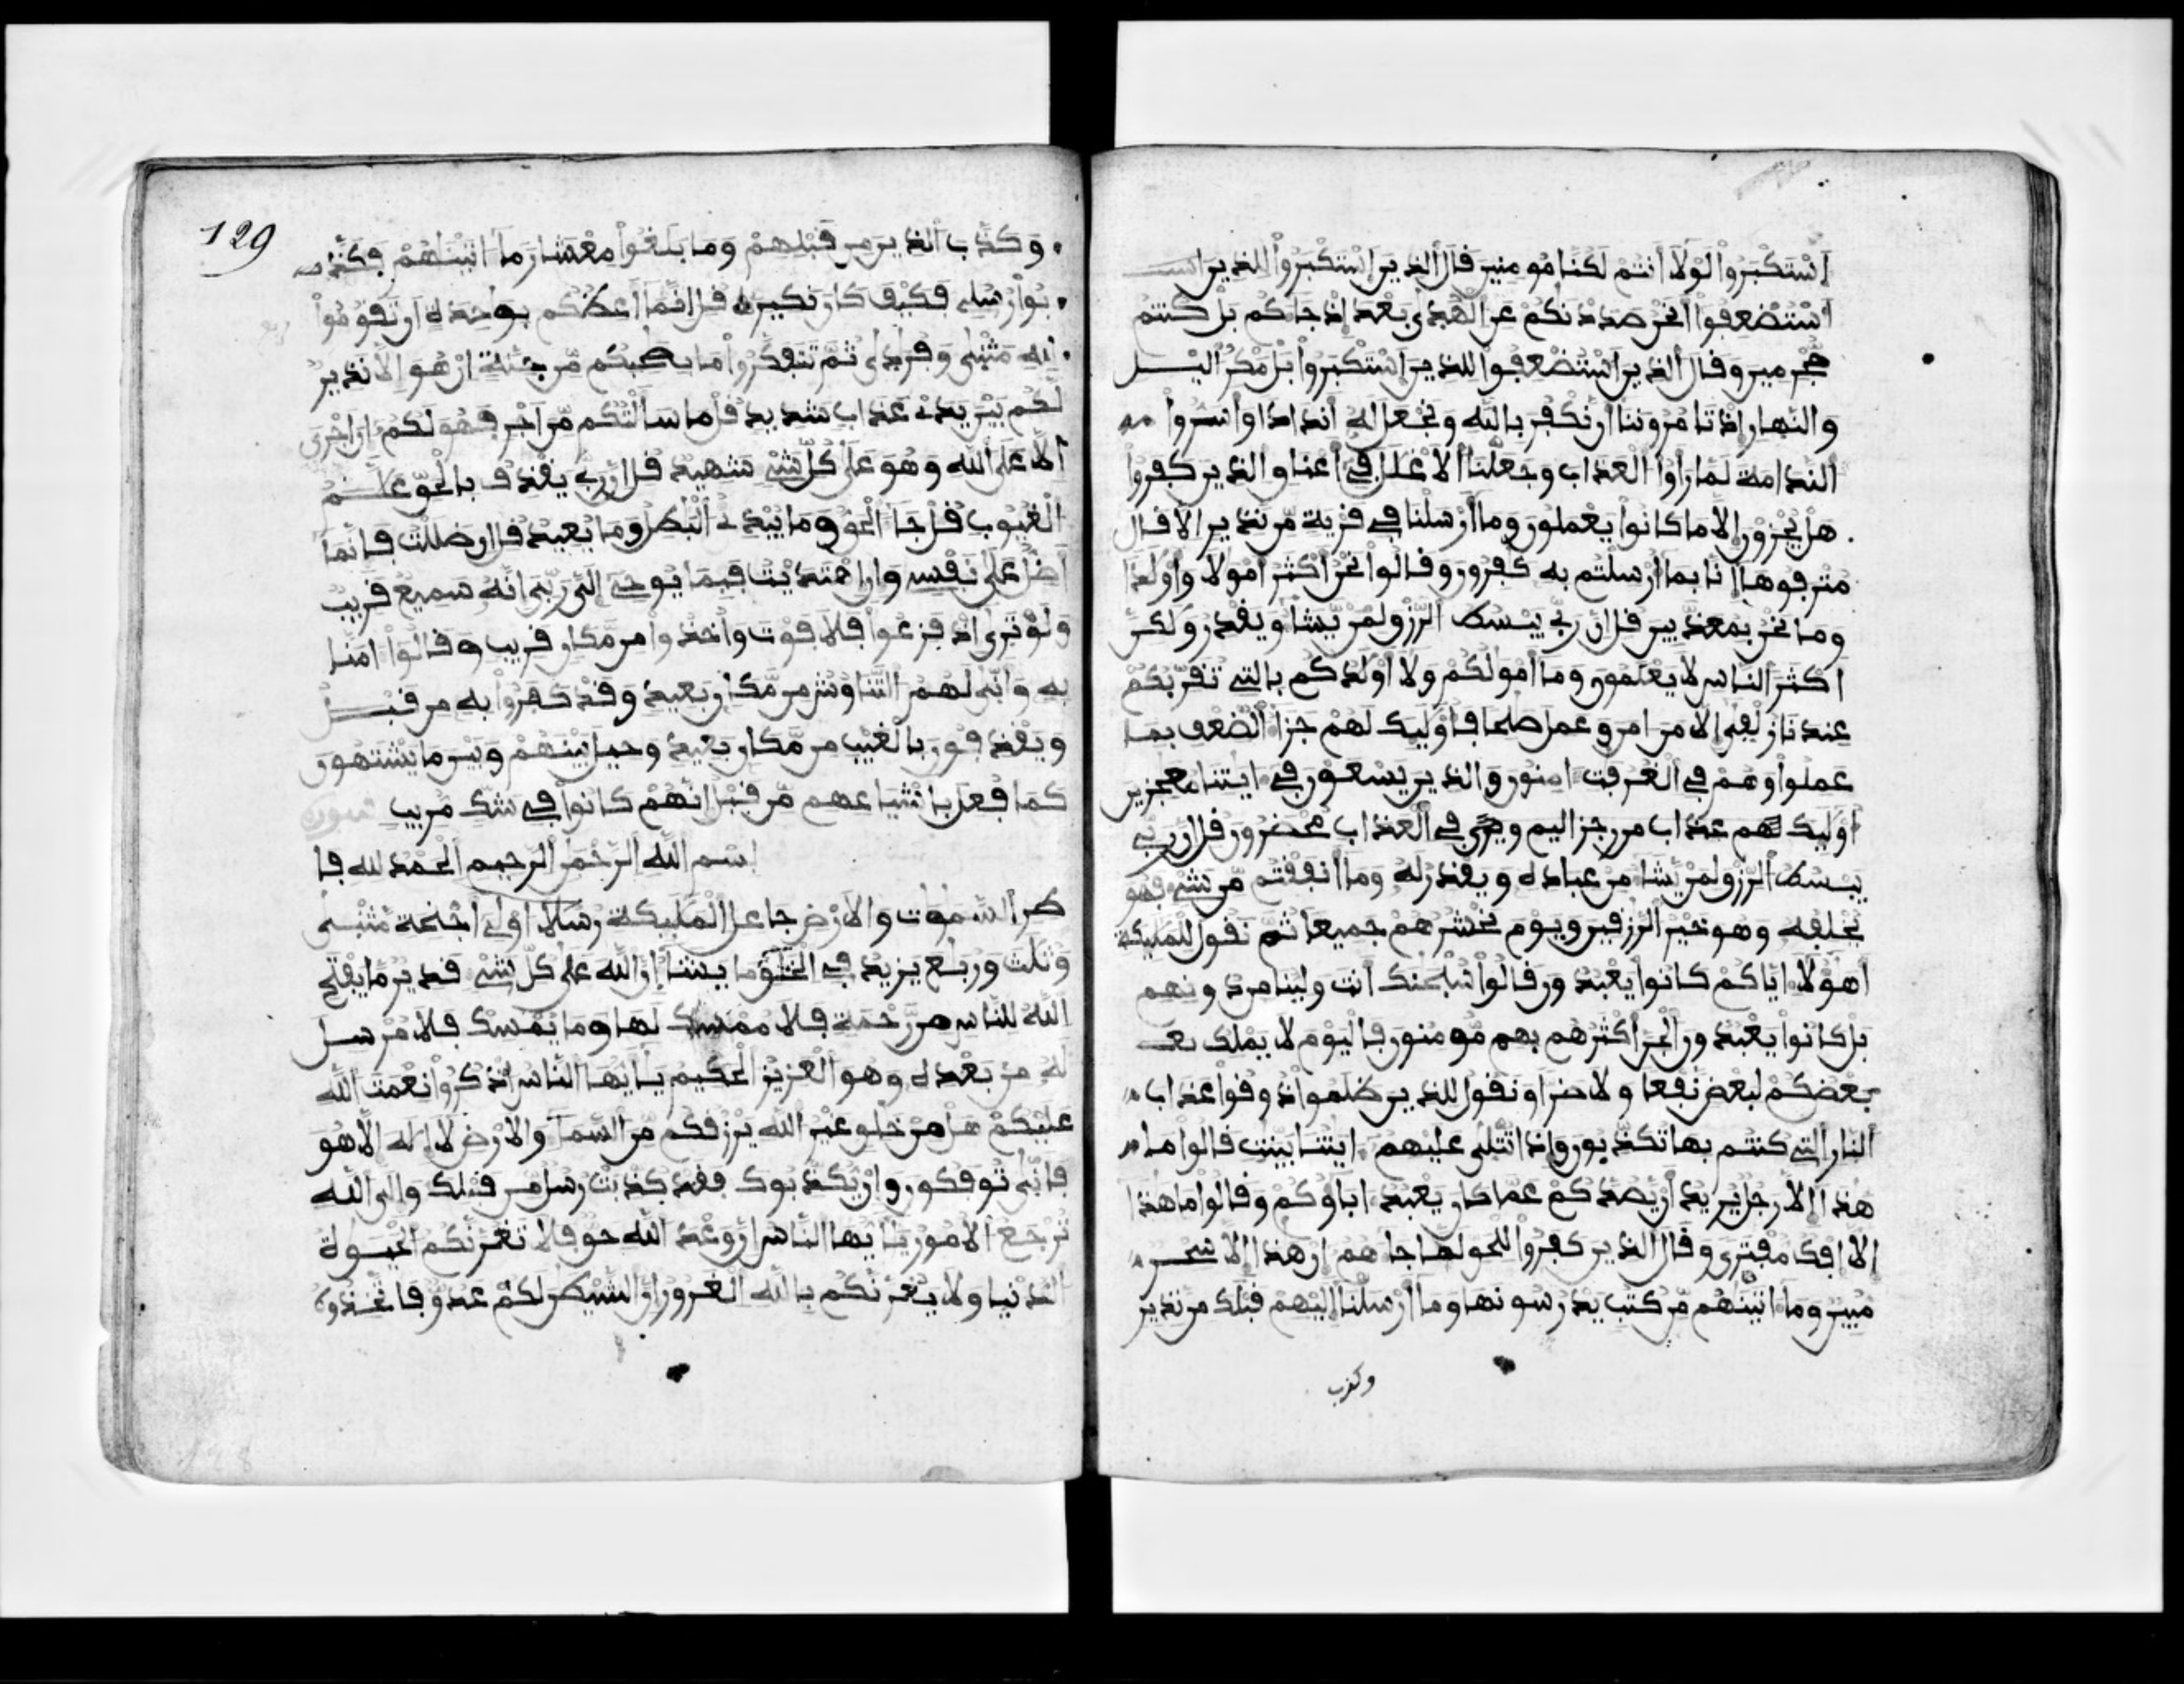 اسْتَكْبَرُواْ لَوْلَا أَنتُمْ لَكُنَّا مُومِنِينَ قَالَ ٱلذِينَ اسْتَكْبَرُواْ لِلذِينَ است
اسْتُضْعِفُواْ أَنَحْنُ صَدَدْنَكُمْ عَنِ ٱلْهُدَىٰ بَعْدَ إِذْ جَاكُم بَلْ كُنتُم
مُّجْرِمِينَ وَقَالَ ٱلذِينَ اسْتُضْعِفُواْ لِلذِينَ اسْتَكْبَرُواْ بَلْ مَكْرُ اليْل
وَالنَّهَارِ إِذْ تَامُرُونَنَا أَن نَّكْفُرَ بِاللَّهِ وَنَجْعَلَ لَهُ أَندَادًا وَأَسَرُّواْ
النَّدَامَةَ لَمَّا رَأَوُاْ الْعَذَابَ وَجَعَلْنَا الْأَغْلَلَ فِي أَعْنَاقِ الذِينَ كَفَرُواْ
هَلْ يُجْزَوْنَ إِلَّا مَا كَانُواْ يَعْمَلُونَ وَمَا أَرْسَلْنَا فِي قَرْيَةٍ مِّن نَّذِيرٍ إِلَّا قَالَ
مُتْرَفُوهَا إِنَّا بِمَا أُرْسِلْتُم بِهِ كَفِرُونَ وَقَالُواْ نَحْنُ أَكْثَرُ أَمْوَلًا وَأَوْلَدًا
وَمَا نَحْنُ بِمُعَذَّبِينَ قُلْ إِنَّ رَبِّي يَبْسُطُ الرِّزْقَ لِمَنْ يَّشَا وَيَقْدِرُ وَلَكِنَّ
أَكْثَرَ النَّاسِ لَا يَعْلَمُونَ وَمَا أَمْوَلُكُمْ وَلَا أَوْلَدُكُم بِالتِي تُقَرِّبُكُمْ
عِندَنَا زُلْفَىٰ إِلَّا مَنَ امَنَ وَعَمِلَ صَلِحًا فَأُوْلَيِكَ لَهُمْ جَزَا الضِّعْفِ بِمَا
عَمِلُواْ وَهُمْ فِي الْغُرُفَتِ ءَامِنُونَ وَالذِينَ يَسْعَوْنَ فِي ءَايَتِنَا مُعَجِزِينَ
أُوْلَيِكَ فِي الْعَذَابِ مُحْضَرُونَ قُلْ إِنَّ رَبِّي
يَبْسُطُ الرِّزْقَ لِمَنْ يَّشَا مِنْ عِبَادِهِ وَيَقْدِرُ لَهُ وَمَا أَنفَقْتُم مِّن شَيْءٍ فَهُوَ
يُخْلِفُهُ وَهُوَ خَيْرُ الرَّزِقِينَ وَيَوْمَ نَحْشُرُهُمْ جَمِيعًا ثُمَّ نَقُولُ لِلْمَلَيِكَةِ
أَهَؤُلَا إِيَّاكُمْ كَانُواْ يَعْبُدُونَ قَالُواْ سُبْحَنَكَ أَنتَ وَلِيُّنَا مِن دُونِهِم
بَلْ كَانُواْ يَعْبُدُونَ الْجِنَّ أَكْثَرُهُم بِهِم مُّومِنُونَ فَالْيَوْمَ لَا يَمْلِكُ بع
بَعْضُكُمْ لِبَعْضٍ نَّفْعًا وَلَا ضَرًّا وَنَقُولُ لِلذِينَ ظَلَمُواْ ذُوقُواْ عَذَابَ
النَّارِ التِي كُنتُم بِهَا تُكَذِّبُونَ وَإِذَا تُتْلَىٰ عَلَيْهِمْ ءَايَتُنَا بَيِّنَتٍ قَالُواْ مَا
هَذَا إِلَّا رَجُلٌ يُرِيدُ أَنْ يَّصُدَّكُمْ عَمَّا كَانَ يَعْبُدُ ءَابَاؤُكُمْ وَقَالُواْ مَا هَذَا
إِلَّا إِفْكٌ مُّفْتَرًى وَقَالَ الذِينَ كَفَرُواْ لِلْحَقِّ لَمَّا جَاهُمْ إِنْ هَذَا إِلَّا سِحْرٌ
مُّبِينٌ وَمَا ءَاتَيْنَهُم مِّن كُتُبٍ يَدْرُسُونَهَا وَمَا أَرْسَلْنَا إِلَيْهِمْ قَبْلَكَ مِن نَّذِيرٍ
وكذب
129
وَكَذَّبَ الذِينَ مِن قَبْلِهِمْ وَمَا بَلَغُواْ مِعْشَارَ مَا ءَاتَيْنَاهُمْ فَكَذَّ
بُواْ رُسُلِي فَكَيْفَ كَانَ نَكِيرِ قُلْ إِنَّمَا أَعِظُكُم بِوَاحِدَةٍ أَن تَقُومُواْ
لِلهِ مَثْنَىٰ وَفُرَادَىٰ ثُمَّ تَتَفَكَّرُواْ مَا بِصَاحِبِكُم مِّن جِنَّةٍ إِنْ هُوَ إِلَّا نَذِيرٌ
لَّكُم بَيْنَ يَدَيْ عَذَابٍ شَدِيدٍ قُلْ مَا سَأَلْتُكُم مِّنَ اَجْرٍ فَهُوَ لَكُمُ إِنَ اَجْرِيَ
إِلَّا عَلَى اللَّهِ وَهُوَ عَلَىٰ كُلِّ شَيْءٍ شَهِيدٌ قُلْ إِنَّ رَبِّي يَقْذِفُ بِالْحَقِّ عَلَّمُ
الْغُيُوبِ قُلْ جَا الْحَقُّ وَمَا يُبْدِئُ الْبَطِلُ وَمَا يُعِيدُ قُلْ إِن ضَلَلْتُ فَإِنَّمَا
أَضِلُّ عَلَىٰ نَفْسِي وَإِنِ اهْتَدَيْتُ فَبِمَا يُوحِي إِلَيَّ رَبِّيَ إِنَّهُ سَمِيعٌ قَرِيبٌ
وَلَوْ تَرَىٰ إِذْ فَزِعُواْ فَلَا فَوْتَ وَأُخِذُواْ مِن مَّكَانٍ قَرِيبٍ وَقَالُواْ ءَامَنَّا
بِهِ وَأَنَّىٰ لَهُمُ التَّنَاوُشُ مِن مَّكَانٍ بَعِيدٍ وَقَدْ كَفَرُواْ بِهِ مِن قَبْلُ
وَيَقْذِفُونَ بِالْغَيْبِ مِن مَّكَانٍ بَعِيدٍ وَحِيلَ بَيْنَهُمْ وَبَيْنَ مَا يَشْتَهُونَ
كَمَا فُعِلَ بِأَشْيَاعِهِم مِّن قَبْلُ إِنَّهُمْ كَانُواْ فِي شَكٍّ مُّرِيبٍ سورة
بِسْمِ اللَّهِ الرَّحْمَنِ الرَّحِيمِ الْحَمْدُ لِلهِ فَا
طِرِ السَّمَوَتِ وَالْأَرْضِ جَاعِلِ الْمَلَيِكَةِ رُسُلًا أُوْلِي أَجْنِحَةٍ مَّثْنَىٰ
وَثُلَثَ وَرُبَعَ يَزِيدُ فِي الْخَلْقِ مَا يَشَا إِنَّ اللَّهَ عَلَىٰ كُلِّ شَيْءٍ قَدِيرٌ مَّا يَفْتَحِ
اللَّهُ لِلنَّاسِ مِن رَّحْمَةٍ فَلَا مُمْسِكَ لَهَا وَمَا يُمْسِكْ فَلَا مُرْسِلَ
لَهُ مِنْ بَعْدِهِ وَهُوَ الْعَزِيزُ الْحَكِيمُ يَا أَيُّهَا النَّاسُ اذْكُرُواْ نِعْمَتَ اللَّهِ
عَلَيْكُمْ هَلْ مِنْ خَلِقٍ غَيْرُ اللَّهِ يَرْزُقُكُم مِّنَ السَّمَا وَالْأَرْضِ لَا إِلَهَ إِلَّا هُوَ
فَأَنَّىٰ تُوفَكُونَ وَإِنْ يُّكَذِّبُوكَ فَقَدْ كُذِّبَتْ رُسُلٌ مِّن قَبْلِكَ وَإِلَى اللَّهِ
تُرْجَعُ الْأُمُورُ يَا أَيُّهَا النَّاسُ إِنَّ وَعْدَ اللَّهِ حَقٌّ فَلَا تَغُرَّنَّكُمُ الْحَيَوةُ
الدُّنْيَا وَلَا يَغُرَّنَّكُم بِاللَّهِ الْغَرُورُ إِنَّ الشَّيْطَنَ لَكُمْ عَدُوٌّ فَاتَّخِذُوهُ